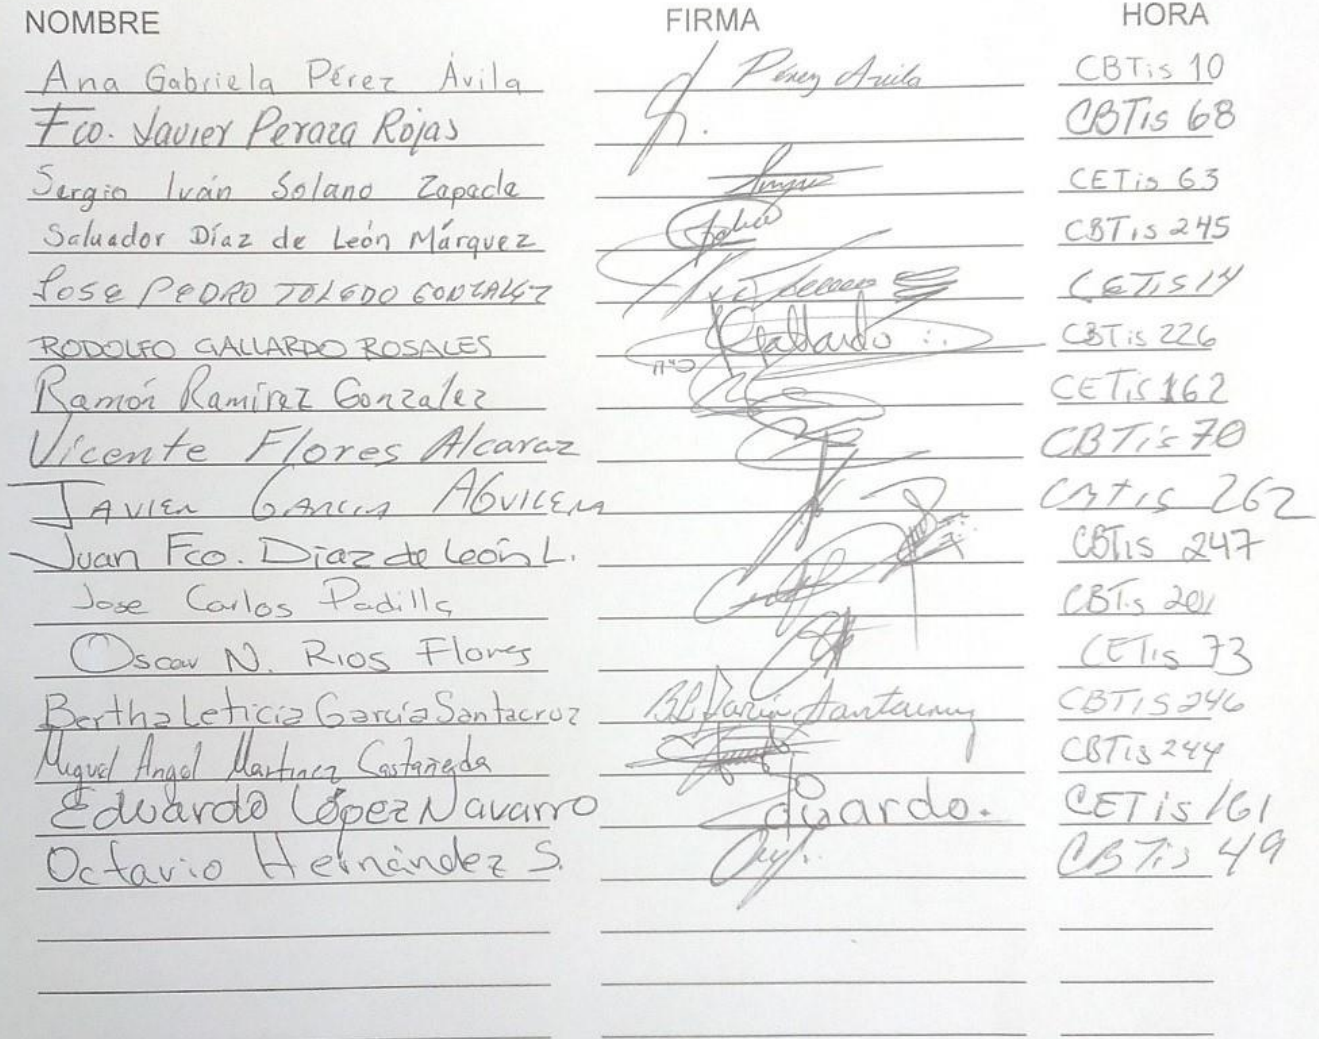 NOMBRE FIRMA HORA
Ana Gabriela Pérez Ávila Pérez Avila CBTis 10
Fco. Javier Peraza Rojas CBTis 68
Sergio Iván Solano Zapada CETis 63
Salvador Díaz de León Márquez CBTis 245
JOSE PEDRO TOLEDO GONZALEZ CETis 14
RODOLFO GALLARDO ROSALES Gallardo CBTis 226
Ramón Ramírez Gonzalez CETis 162
Vicente Flores Alcaraz CBTis 70
JAVIER GARCIA AGUILERA CBTis 262
Juan Fco. Díaz de León L. CBTis 247
Jose Carlos Padilla CBTis 201
Oscar N. Rios Flores CETis 73
Bertha Leticia García Santacruz CBTIS 246
Miguel Angel Martinez Castañeda CBTis 244
Eduardo López Navarro Eduardo. CETis 161
Octavio Hernández S. CBTis 49